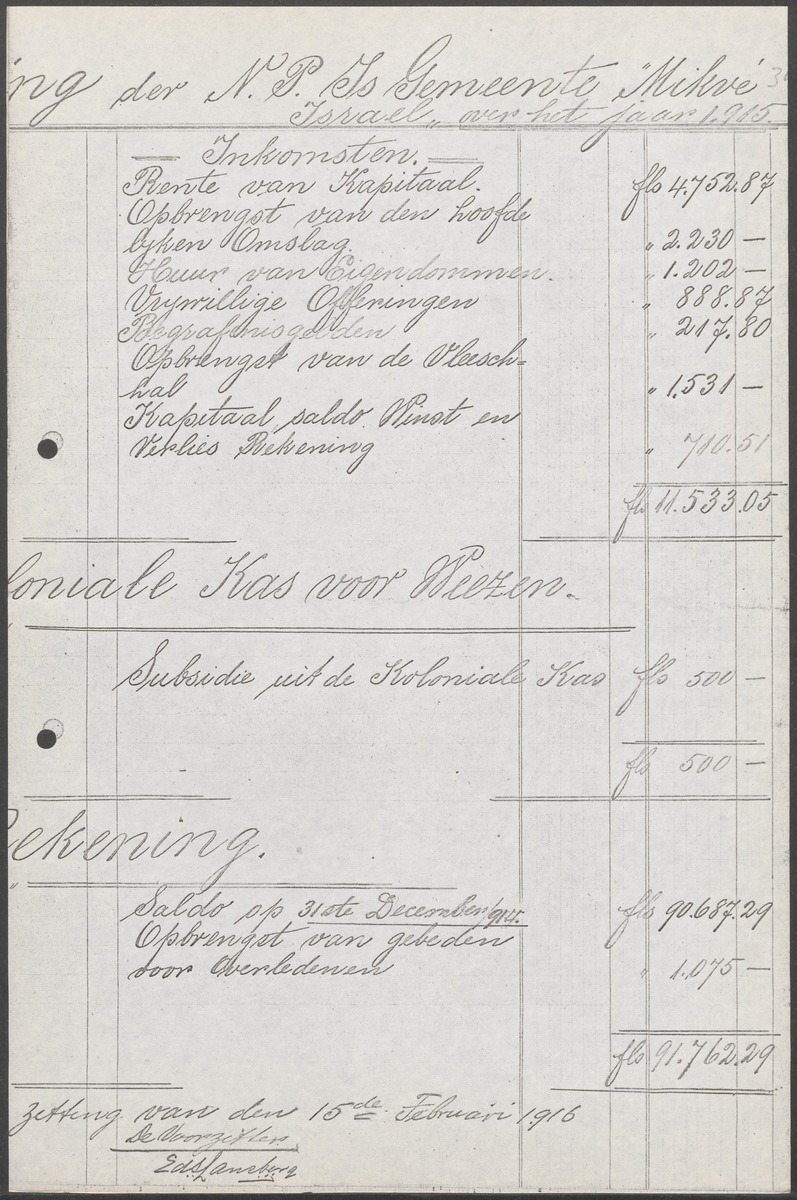 ng der N. P. Is Gemeente "Mikvé
Israel" over het jaar 1.915.
Inkomsten.
Rente van Kapitaal. fls 4.752.87
Opbrengst van den hoofde
lyken Omslag. " 2.230 —
Huur van Eigendommen. " 1.202 —
Vrywillige Offeringen " 888.87
Begrafenisgelden " 217.80
Opbrengst van de Vleesch=
hal " 1.531 —
Kapitaal saldo Winst en
Verlies Rekening " 710.51
fls 11.533.05
loniale Kas voor Weezen.
Subsidie uit de Koloniale Kas fls 500 —
fls 500 —
ekening.
Saldo op 31ste December 1914. fls 90.687.29
Opbrengst van gebeden
voor Overledenen " 1.075 —
fls 91.762.29
zetting van den 15de Februari 1916
De Voorzitter
Ed. S. Lansberg